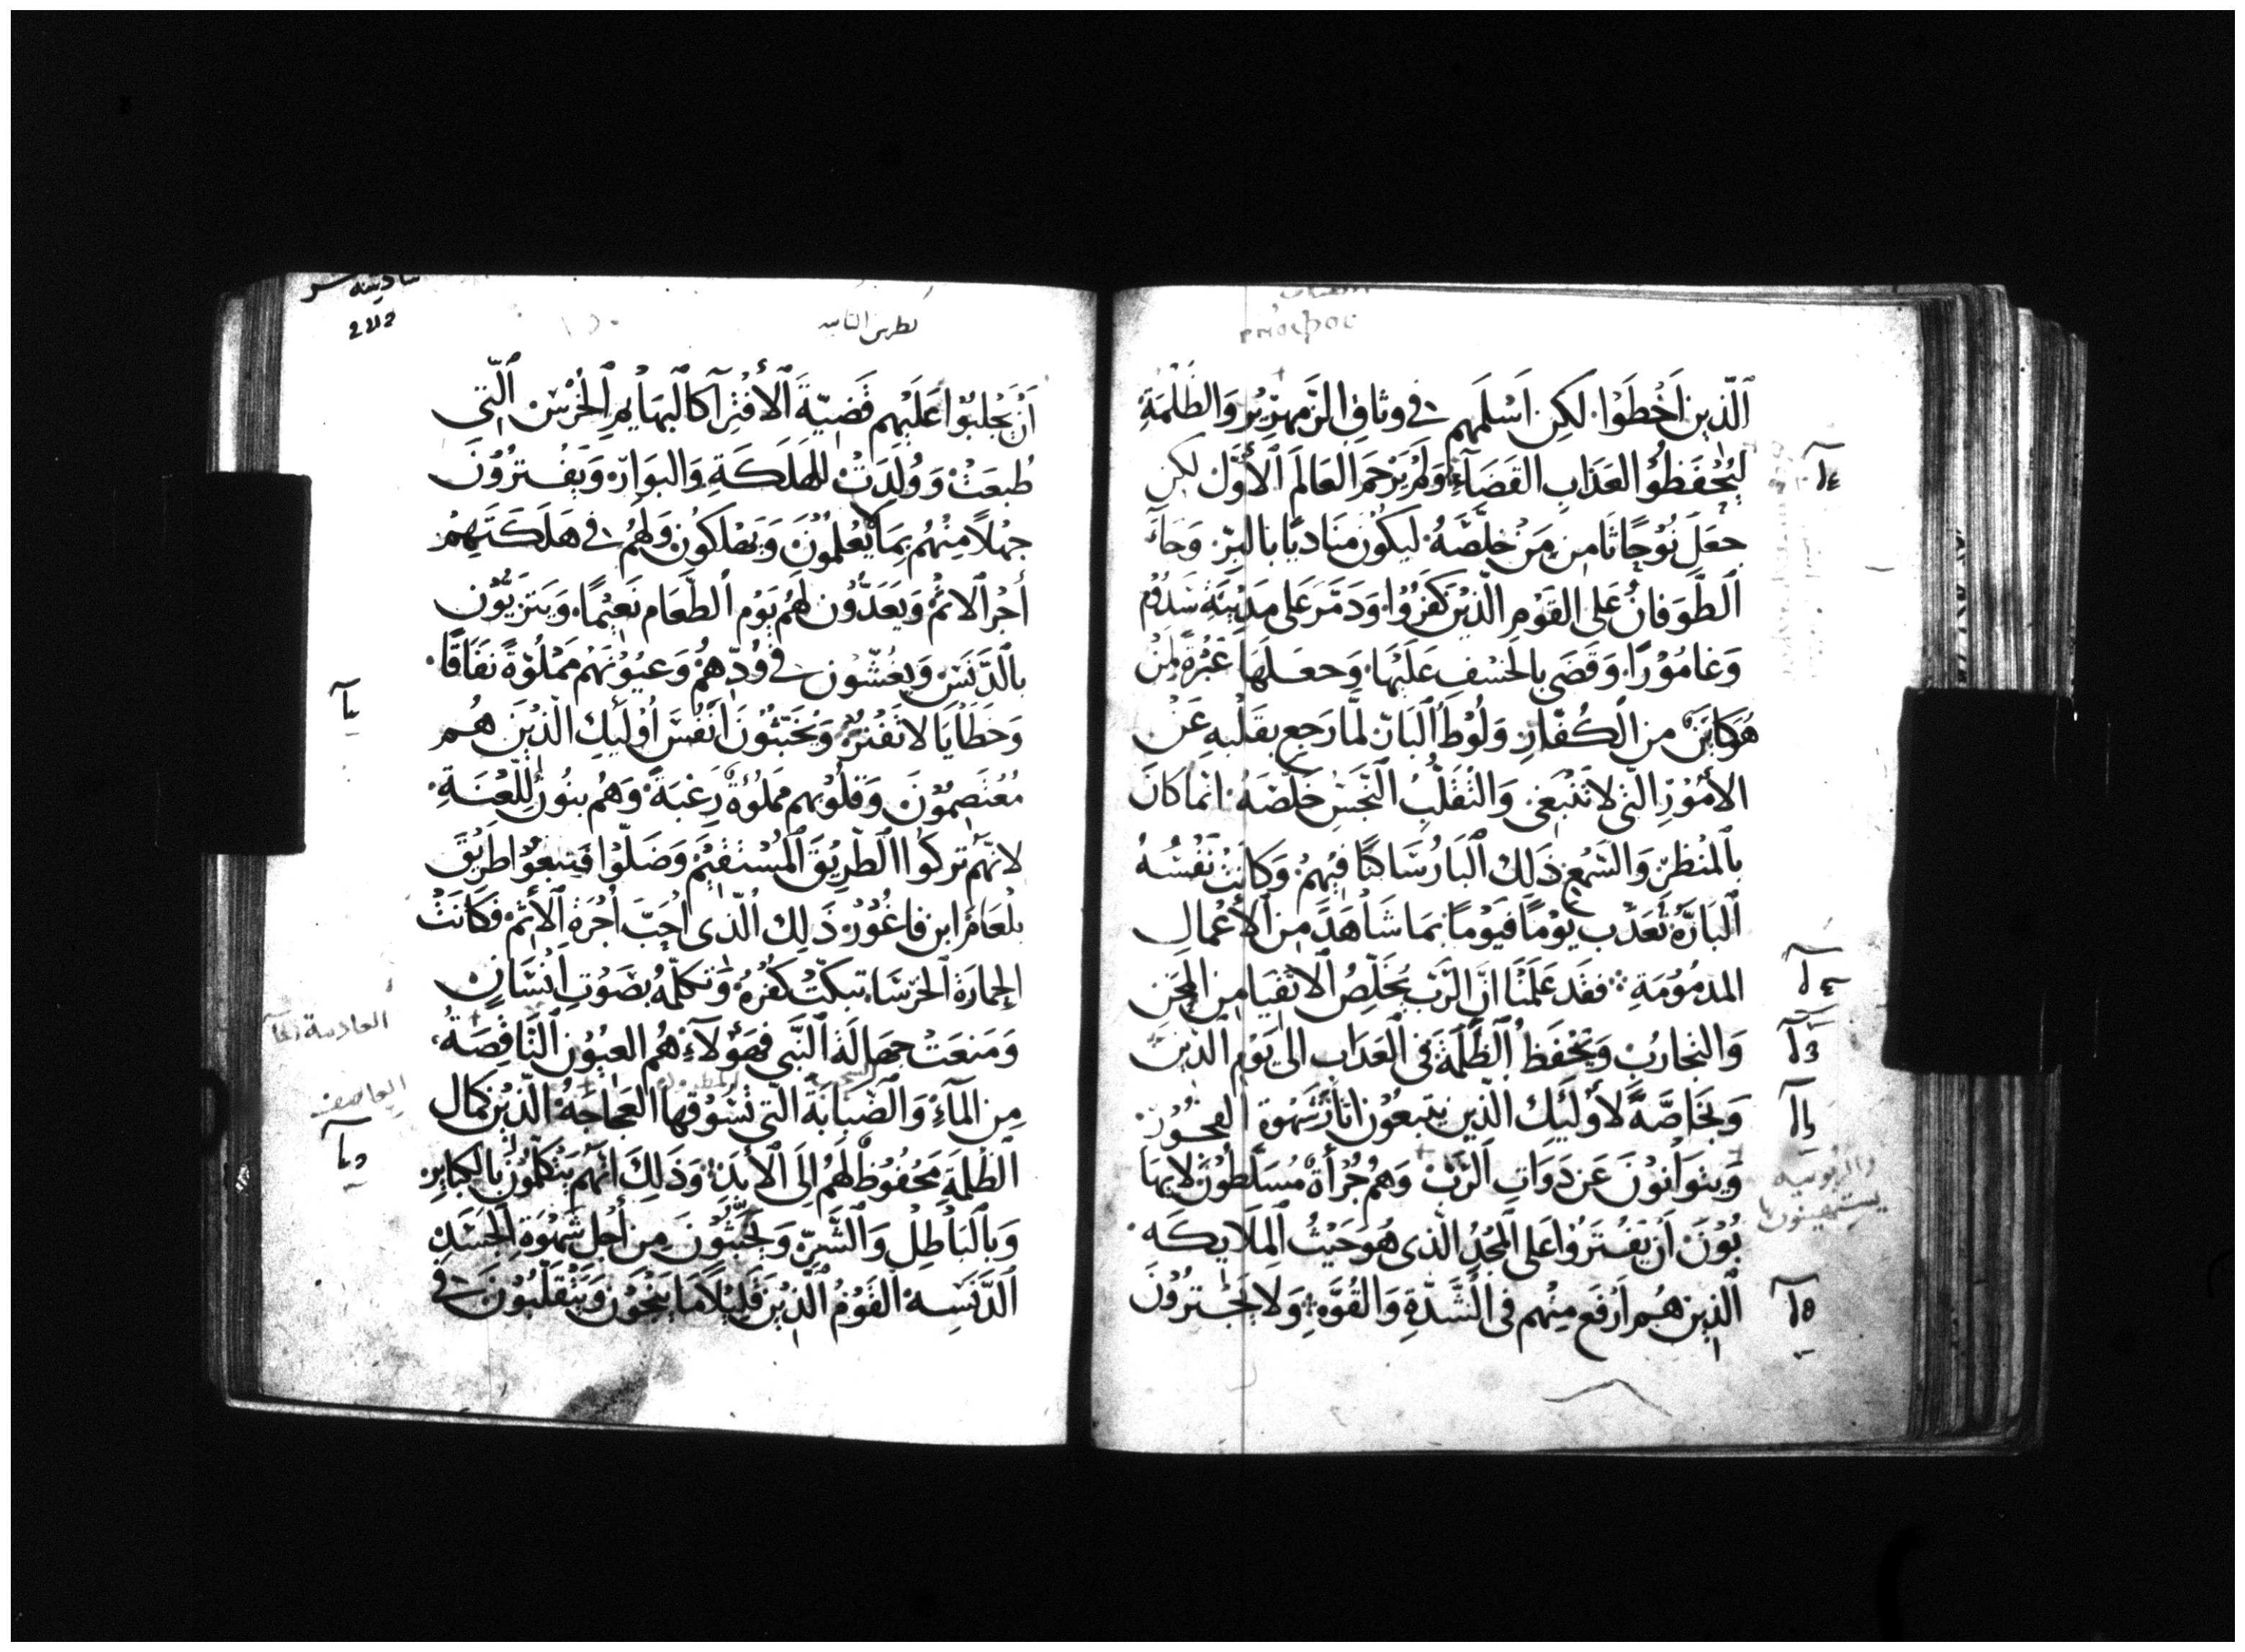 الَّذِينَ اَخْطَوْا. لَكِن اَسْلَمَهم في وثاقِ الزَّمهَرِيُرِ وَالظُلْمَةِ
لِيُحْفَظُوْا العَذَابِ القَضَآءِ وَلَمْ يَرْحَمِ العَالَمَ الأَوَّلَ لكن
جعَلَ نُوْحًا ثَامِن مِمَنْ خلَّصَهُ. ليَكُونَ منَاديًا باالبِرِّ. وَجَآءَ
الطَّوَفانُ عَلى القَوْمِ الّذيْنَ كَفَرُوْا. وَدَمَّرَ عَلى مَدِيْنَةِ سَدُوْم
وَغَامُوْرَا. وَقَضَى بالخسْفِ عَلَيْهَا. وَجعَلهَا عَبْرَةً لمِنْ
هُوَكايَنٌ مِن الكُفّارِ. وَلُوْطُ البَارّ لمَّا رَجع بقَلْبهِ عَنْ
الأمُوْرِ التّي لاَتَنْبَغي. وَالتَّقَلُّبِ النّجَسْ خَلّصَهُ. انما كَانَ
بالمنْظَرِ وَالسَّمْعِ ذَلِك البَارُ سَاكنًا فيْهمْ. وَكَانَتْ نَفْسُهُ
البَارَّةُ تَعَذَّب يوْمًا فيَوْمًا. بمَا شَاهَدَ مِن الأعْمالِ
المذمُوْمَةِ. فقَد عَلمْنَا انَّ الرَّبّ يُخَلّصُ الأتْقيَا مِن المِحَن
وَالتجَاربْ وَيَحْفَظُ الظَّلَمَةَ في العَذَاب الى يَوْم الدّينَ
وَبخَاصَّةً لأوْلَئِك الّذِين يتبعُوْن اثارَ شَهْوة الفجُوْرْ.
وَيتوَانَوْنَ عَن ذَوَاتِ الرَّبّ وَهُم جُرْأةٌ مُسَلّطُوْنَ لايَهَا
بُوْنَ. اَنْ يَفْتَرُوْا عَلى المجْدِ الّذي هُوَ حَيْثُ المِلاَيكَه.
الّذِين هُم اَرْفَع مِنْهم في الشّدَّةِ وَالقُوَّهِ. وَلا يَجْترُوْنَ
بطرس الثانيه
اَنْ يَجْلِبُوْا عَلَيْهم قَضِيّةَ الأفْتِرَآ كالبَهايمِ الخُرْسْ الّتي
طُبعَتْ وَوُلِدَتْ للهَلَكَةِ وَالبَوَارّ. وَيَفْتَرُوْنَ
جهْلاً مِنْهُم بِمَا لايَعْلَمُوْنَ وَيَهْلَكُوْن وَلَهُم في هَلَكَتِهِمْ
أجْرَ الاثمْ وَيَعَدُّوْن لهُم يَوْم الطّعَام نَعِيْمًا. وَيَتزَيّوْن
بالدَّنَسْ وَيغُشّون في وُدّهِمْ وَعيُوْنَهُم ممْلُوْةً نَفَاقًا.
وَخَطَايَا لاتَفْتُرُ. وَيُخَبّثُوْنَ اَنْفُسَ اُوْلَئِكِ الّذيْنَ هُم
مُعْتَصِمُوْنَ. وَقلُوْبهم مَملُوْءَةٌ رَغبَةً. وَهُم بنُوْن للّعْنَةِ.
لانّهُمْ تركوُا الطّرِيْقَ المُسْتقيْمْ وَضَلّوْا فتبعُوْا طَرِيْقَ
بلْعَام ابن فاغُوْرْ. ذَلِك الّذى احَبَّ اجْرَةَ الأثمْ فَكَانَتْ
الحمارَة الخرْسَا. تبكّتْ كُفْرَهُ. وَتكلّمهُ بصَوْتِ اِنْسَانٍ
وَمَنعَتْ جهَالَةَ النّبي فَهَؤلآءِ هُم العيوُن النّاقصَةُ.
مِن المآءْ وَالضّبَابَةَ الّتي تسُوقهَا العَجاجَةُ الّذيْن كمَال
الظُلمَةِ مَحْفُوْظْ لَهُمْ اِلَى الأبَدْ. وَذَلِكَ انّهُم يتكلّمُوْنَ بالكبَايرِ
وَبالبَاطِلِ وَالشّرِّ. وَيخَبّثُوْنَ مِن أجْل شَهْوَةِ الجَسَدِ
الدَّنسِه. القَوْمُ الّذيْنَ قَليْلاً مَا يَنْجُوْن وَيتَقَلّبُوْنَ في